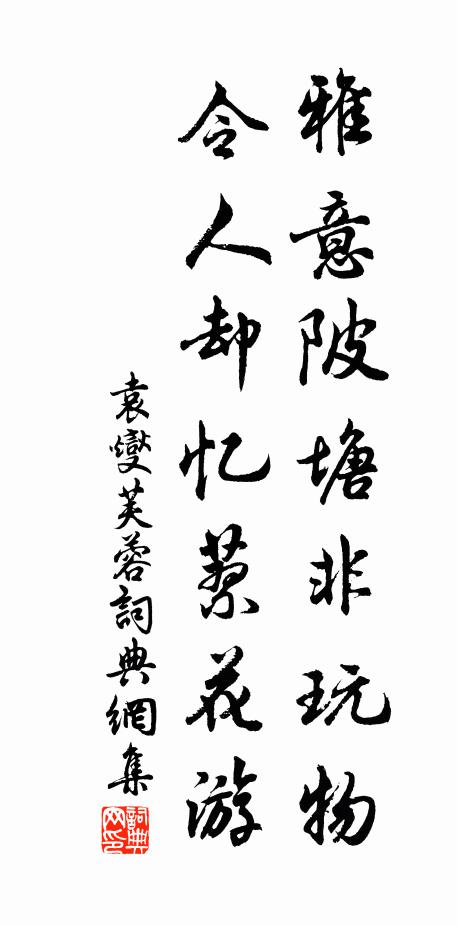 雅意陂塘非玩物
令人却忆蔡花游
袁燮芙蓉詞典網集
詞典网印